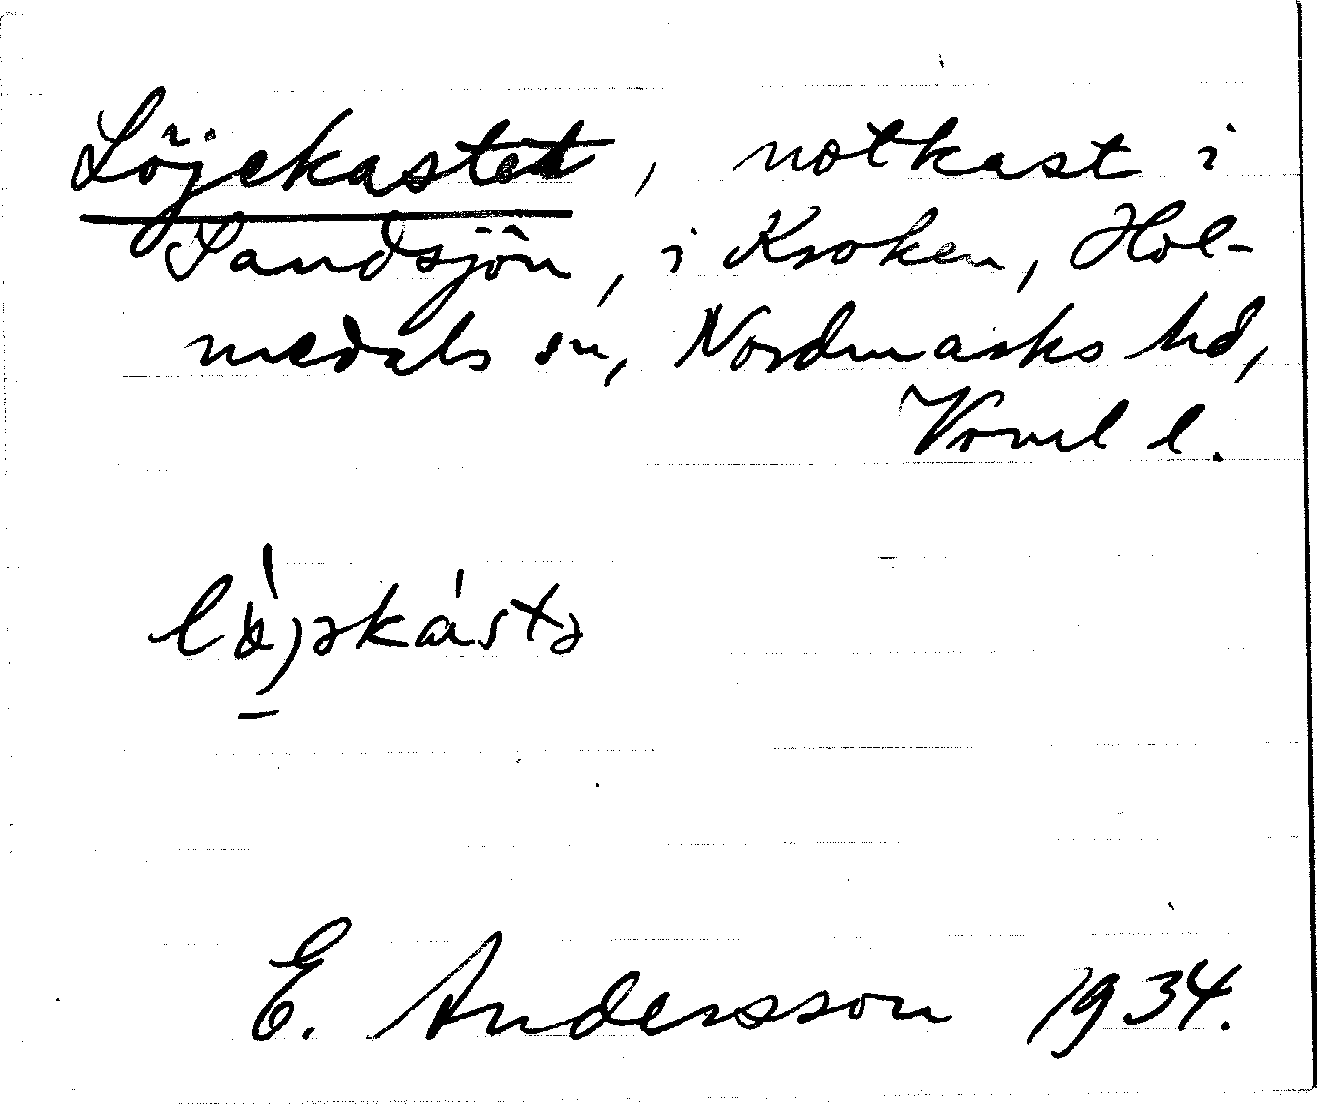 Löjekastet, notkast i
Sandsjön, i Kroken, Hol-
medals sn, Nordmarks hd,
Vrml l.
E. Andersson 1934.